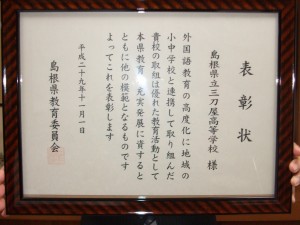 表彰状
島根県立三刀屋高等学校 様
外国語教育の高度化に地域の
小中学校と連携して取り組んだ
貴校の取組は優れた教育活動として
本県教育の充実発展に資すると
ともに他の模範となるものです
よってこれを表彰します
平成二十九年十一月一日
島根県教育委員会